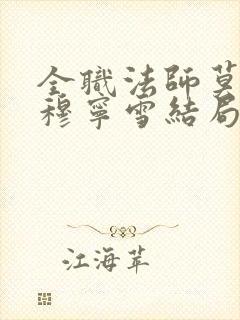 全職法師莫
穆寧雪結局
江海苹